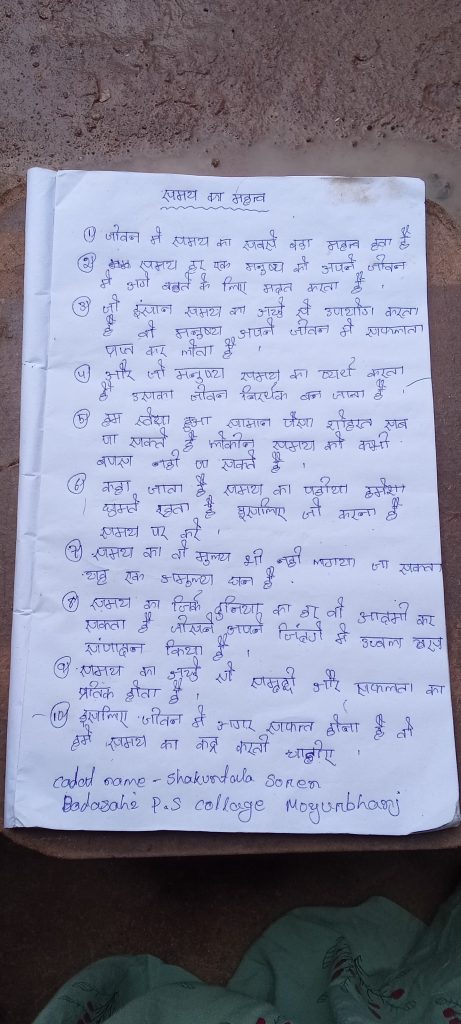 समय का महत्व
① जीवन में समय का सबसे बड़ा महत्व होता है
② समय हर एक मनुष्य को अपने जीवन
में आगे बढ़ने के लिए मदत करता है ।
③ जो इंसान समय का अच्छे से उपयोग करता
है वो मनुष्य अपने जीवन में सफलता
प्राप्त कर लेता है ।
④ और जो मनुष्य समय का व्यर्थ करता
है उसका जीवन निरर्थक बन जाता है ।
⑤ हम खोया हुआ सामान पैसा शोहरत सब
पा सकते है लेकीन समय को कभी
वापस नही पा सकते है ।
⑥ कहा जाता है समय का पहीया हमेशा
घुमते रहता है इसलिए जो करना है
समय पर करे ।
⑦ समय का तो मुल्य भी नही लगाया जा सकता
यह एक अमुल्य धन है ।
⑧ समय का जिर्क दुनिया का हर वो आदमी कर
सकता है जीसने अपने जिंदगी में
संपादन किया है ।
⑨ समय का अच्छे से समृद्दी और सफलता का
प्रतिक होता है ।
⑩ इसलिए जीवन में अगर सफल होना है तो
हमे समय का कद्र करनी चाहीए
Cadad name - Shakuntala Soren
Badasahi P.S College Moyurbhanj